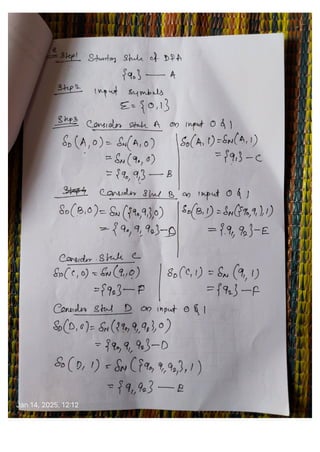 Step1 Starting State of DFA
{q₀} — A
Step2 input Symbols
Σ = {0,1}
Step3 Consider State A on input 0 & 1
δD(A,0) = δN(A,0) δD(A,1) = δN(A,1)
= δN(q₀,0) = {q₁} — C
= {q₀,q₁} — B
Step4 Consider State B on input 0 & 1
δD(B,0) = δN({q₀,q₁},0) δD(B,1) = δN({q₀,q₁},1)
= {q₀,q₁,q₂} — D = {q₁,q₂} — E
Consider State C
δD(C,0) = δN(q₁,0) δD(C,1) = δN(q₁,1)
= {q₂} — F = {q₂} — F
Consider State D on input 0 & 1
δD(D,0) = δN({q₀,q₁,q₂},0)
= {q₀,q₁,q₂} — D
δD(D,1) = δN({q₀,q₁,q₂},1)
= {q₁,q₂} — E
Jan 14, 2025, 12:12